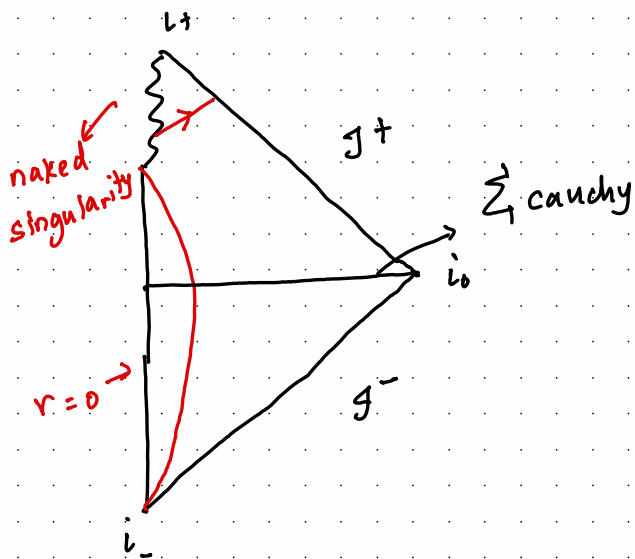 i+
J+
naked
singularity
Σ cauchy
i₀
r = 0
J-
i_